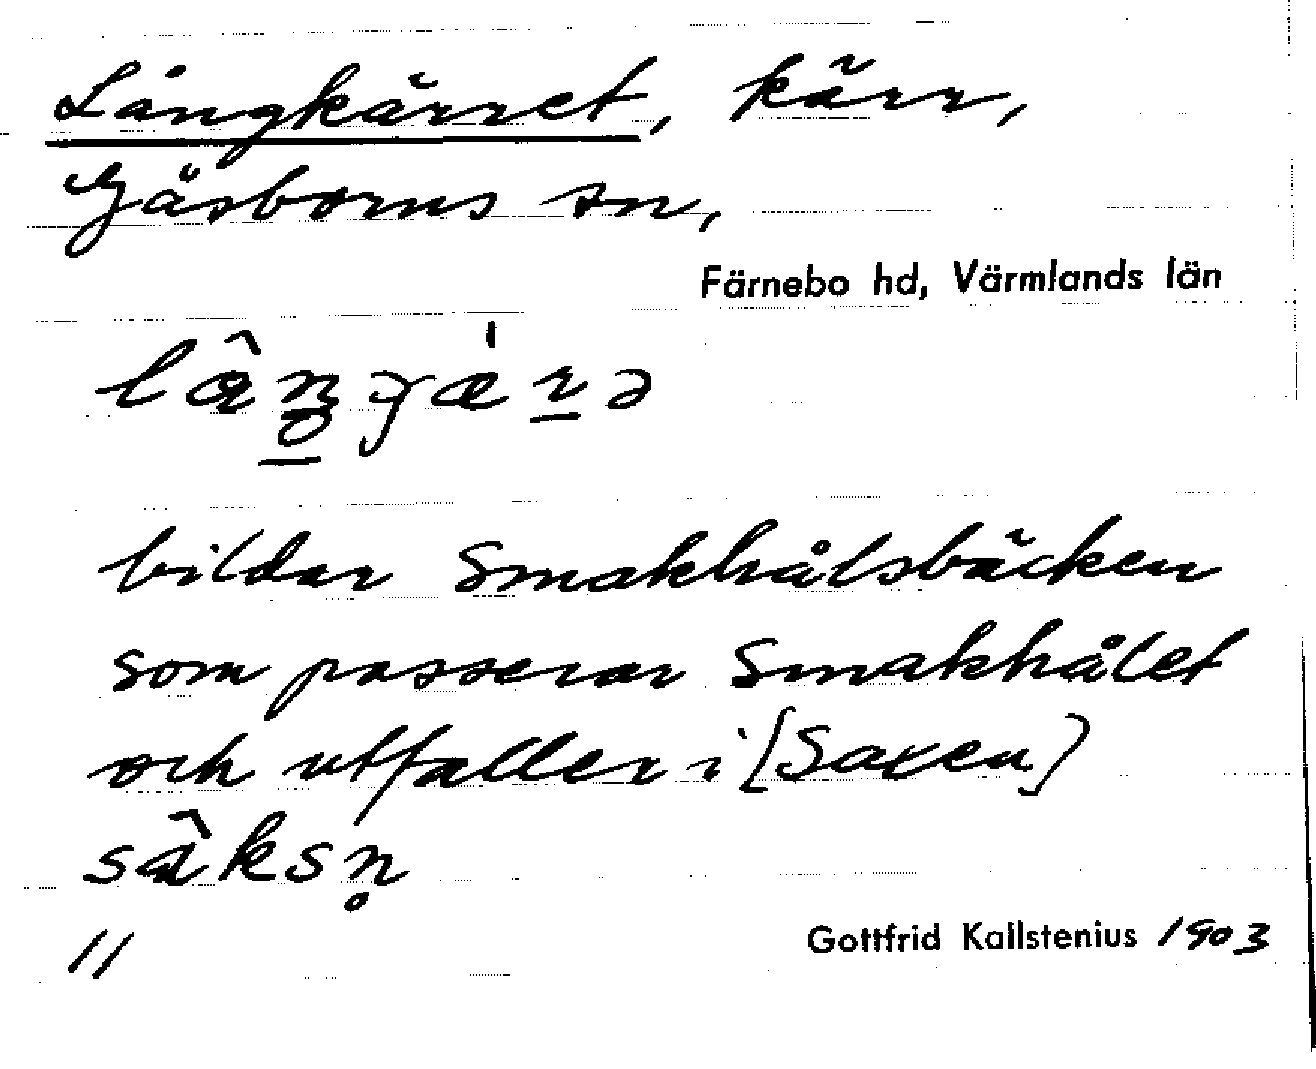 Långkärret, kärr,
Gåsborns sn,
Färnebo hd, Värmlands län
bildar Smakhålsbäcken
som passerar Smakhålet
och utfaller i [Saxen]
sâksn̥
11
Gottfrid Kallstenius 1903